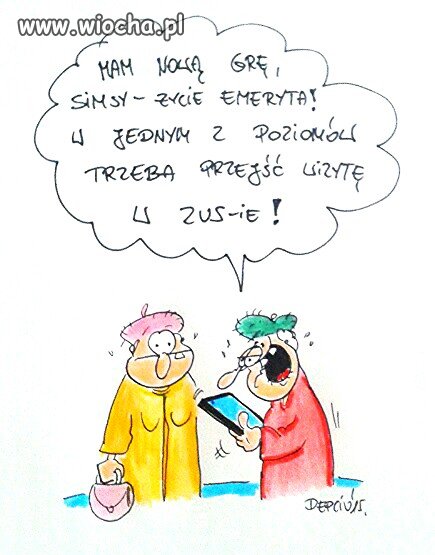 www.wiocha.pl
MAM NOWĄ GRĘ,
SIMSY-ŻYCIE EMERYTA!
W JEDNYM Z POZIOMÓW
TRZEBA PRZEJŚĆ WIZYTĘ
W ZUS-IE!